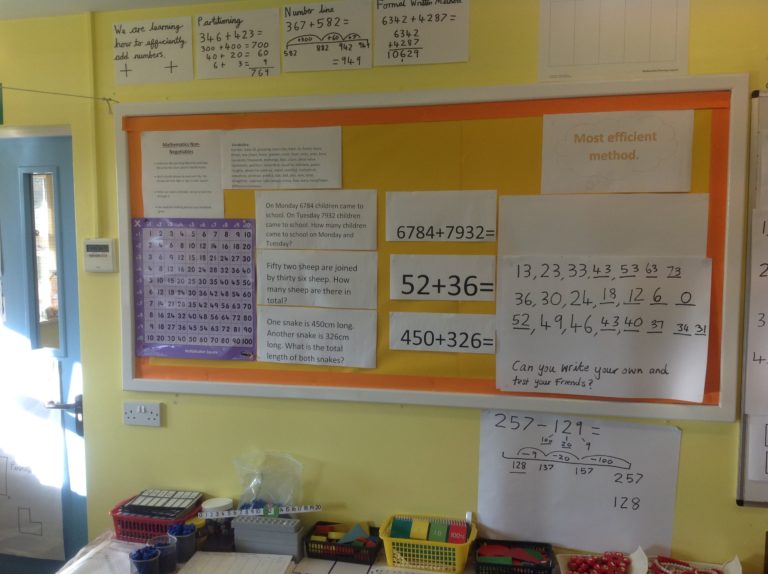 We are learning
how to efficiently
add numbers.
+ +
Partitioning
346 + 423 =
300 + 400 = 700
40 + 20 = 60
6 + 3 = 9
769
Number line
367 + 582 =
+300 +60 +7
582 882 942 949
= 949
Formal Written Method
6342 + 4287 =
6342
+4287
10629
1
Mathematics Non-
Negotiables
Vocabulary
Most efficient
method.
On Monday 6784 children came to
school. On Tuesday 7932 children
came to school. How many children
came to school on Monday and
Tuesday?
6784+7932=
Fifty two sheep are joined
by thirty six sheep. How
many sheep are there in
total?
52+36=
One snake is 450cm long.
Another snake is 326cm
long. What is the total
length of both snakes?
450+326=
X 1 2 3 4 5 6 7 8 9 10
1 1 2 3 4 5 6 7 8 9 10
2 2 4 6 8 10 12 14 16 18 20
3 3 6 9 12 15 18 21 24 27 30
4 4 8 12 16 20 24 28 32 36 40
5 5 10 15 20 25 30 35 40 45 50
6 6 12 18 24 30 36 42 48 54 60
7 7 14 21 28 35 42 49 56 63 70
8 8 16 24 32 40 48 56 64 72 80
9 9 18 27 36 45 54 63 72 81 90
10 10 20 30 40 50 60 70 80 90 100
Multiplication Square
13, 23, 33, 43, 53 63 73
36, 30, 24, 18, 12 6 0
52, 49, 46, 43, 40 37 34 31
Can you write your own and
test your friends?
257 - 129 =
100 20 9
-9 -20 -100
128 137 157 257
128